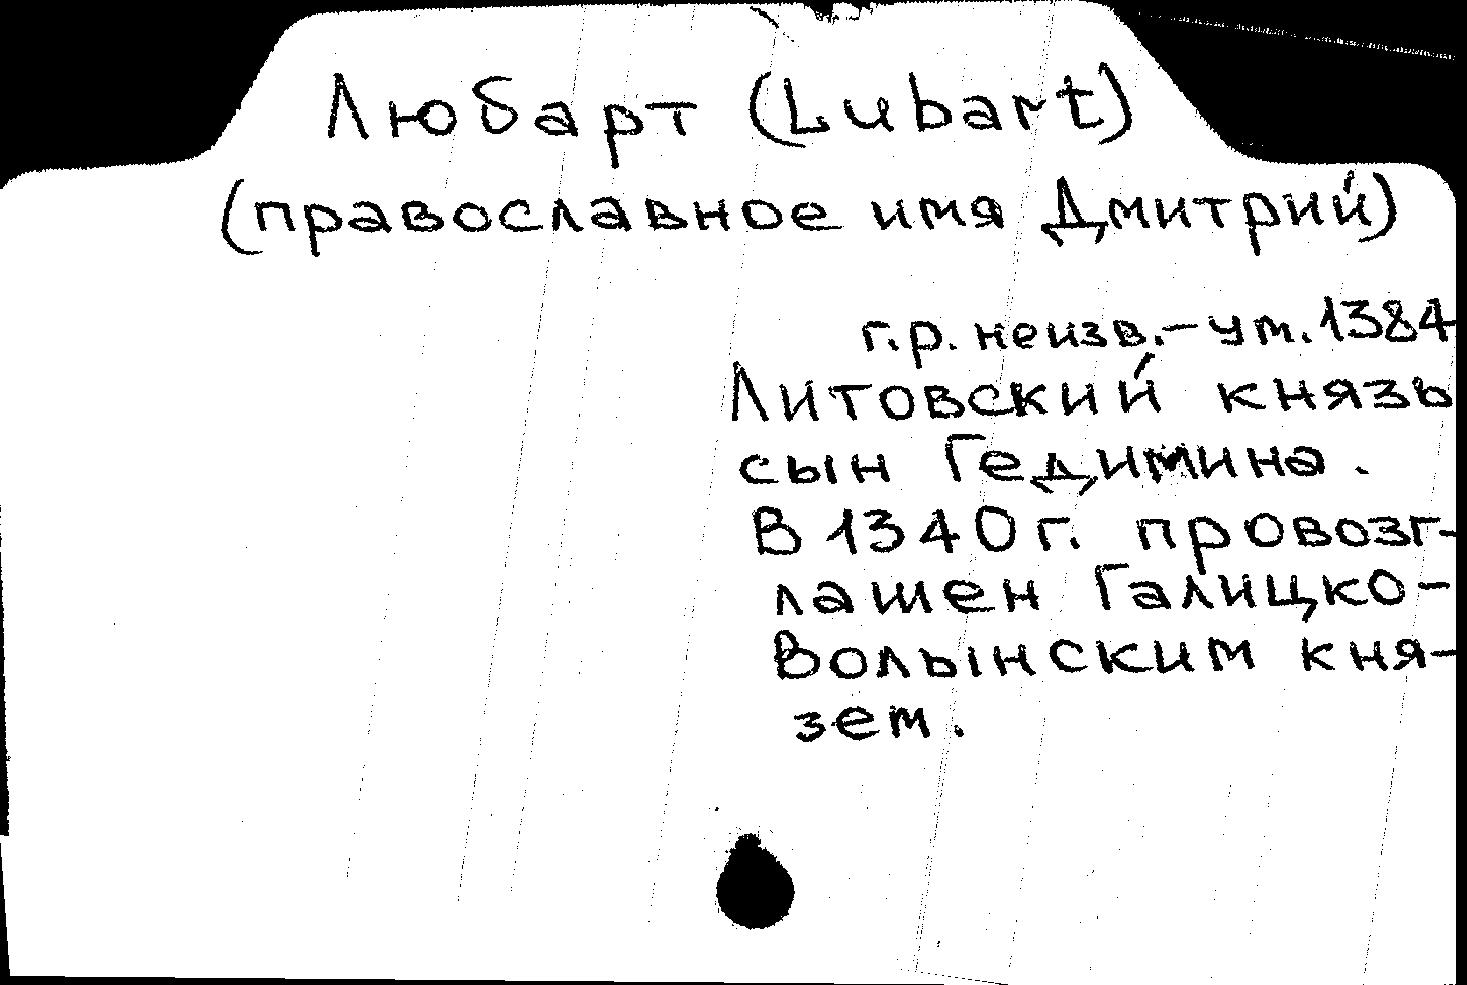 Любарт (Lubart)
(православное имя Дмитрий)
г.р. неизв.-ум. 1384
Литовский князь
сын Гедимина.
В 1340 г. провозг-
лашен Галицко-
Волынским кня-
зем.